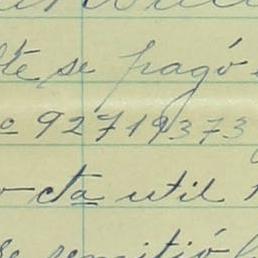 te se pagó
92719373
cta util
se remitió